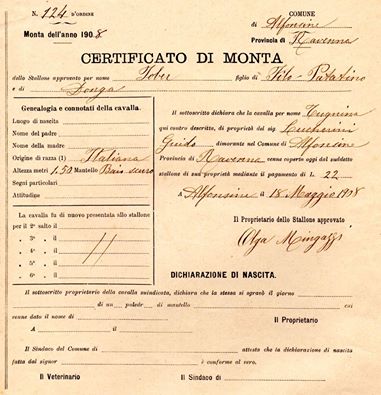 N. 124 D'ORDINE
COMUNE
di Alfonsine
Monta dell'anno 1908
Provincia di Ravenna
CERTIFICATO DI MONTA
dello Stallone approvato per nome figlio di
e di Donga
Genealogia e connotati della cavalla.
Luogo di nascita
Nome del padre
Nome della madre
Origine di razza (1) Italiana
Altezza metri 1.50 Mantello Baio scuro
Segni particolari
Attitudine
Il sottoscritto dichiara che la cavalla per nome
qui contro descritto, di proprietà del sig. Lucherini
Guido dimorante nel Comune di Alfonsine
Provincia di Ravenna venne coperta oggi dal suddetto
stallone di sua proprietà mediante il pagamento di L. 22
A Alfonsine il 18 Maggio 1908
La cavalla fu di nuovo presentata allo stallone
per il 2° salto il
» 3° » il
» 4° » il
» 5° » il
» 6° » il
Il Proprietario dello Stallone approvato
Olga Mingazzi
DICHIARAZIONE DI NASCITA.
Il sottoscritto proprietario della cavalla suindicata, dichiara che la stessa si sgravò il giorno
di un poledr di mantello cui
venne dato il nome di
Il Proprietario
A il
Il Sindaco del Comune di attesta che la dichiarazione di nascita
fatta dal signor è conforme al vero.
Il Veterinario
Il Sindaco di